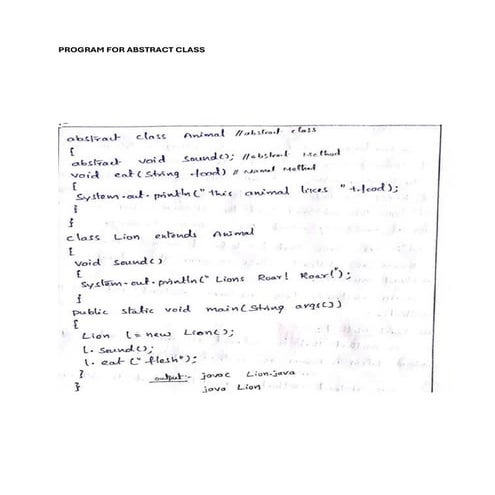 PROGRAM FOR ABSTRACT CLASS
abstract class Animal //abstract class
{
abstract void sound(); //abstract Method
void eat(String food) // Normal Method
{
System.out.println("this animal likes "+food);
}
}
class Lion extends Animal
{
void sound()
{
System.out.println("Lions Roar! Roar!");
}
public static void main(String args[])
{
Lion l=new Lion();
l.sound();
l.eat("flesh");
}
output:- javac Lion.java
} java Lion